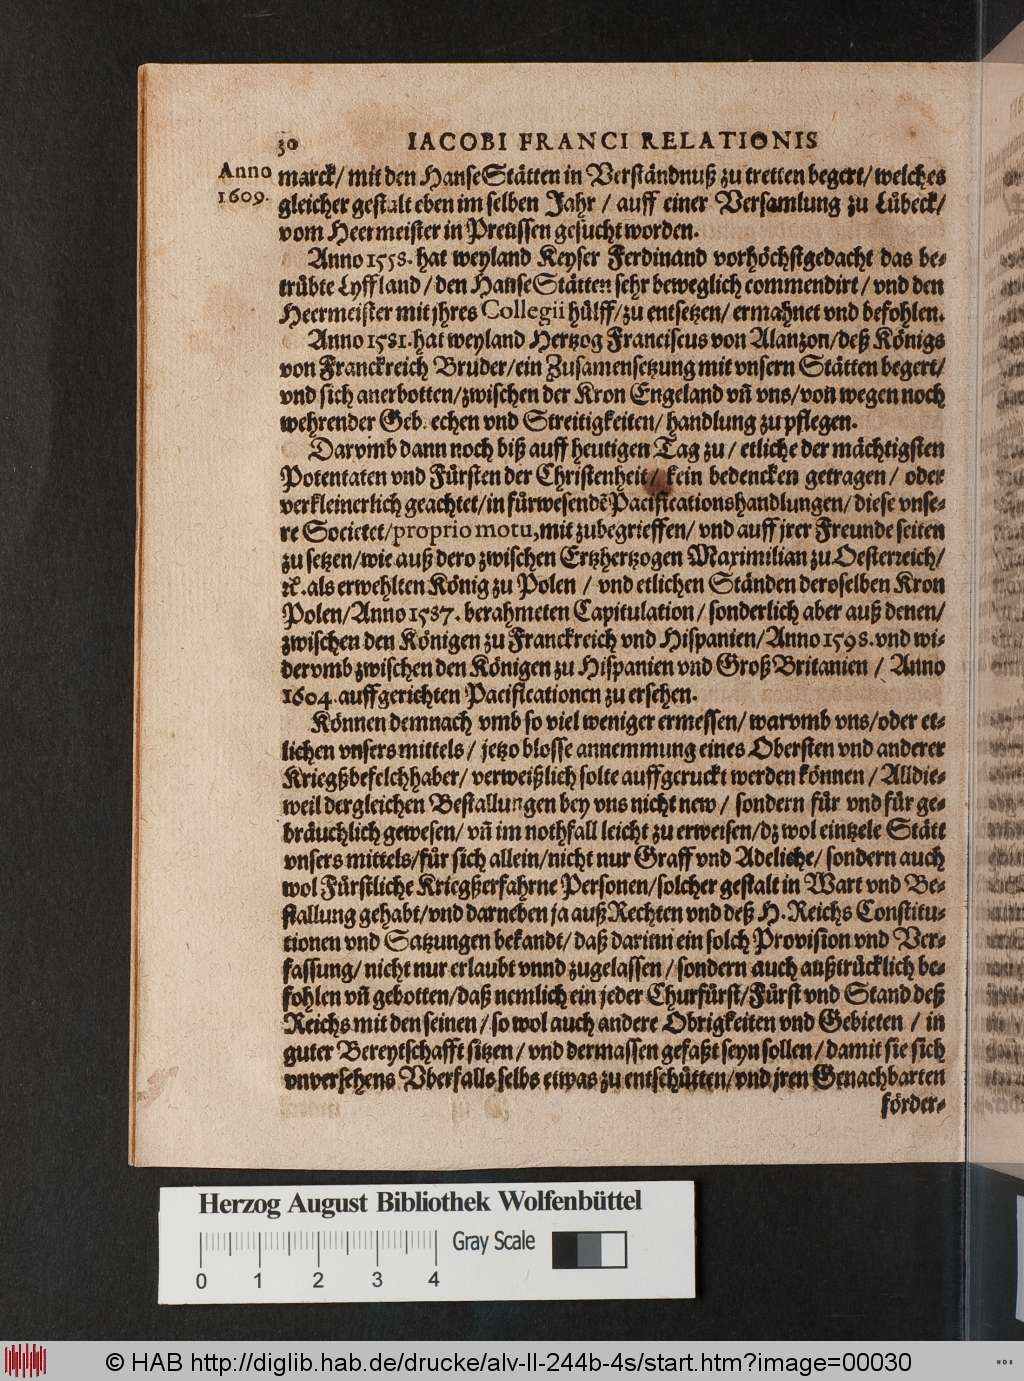 30 IACOBI FRANCI RELATIONIS
Anno
1609.
marck/ mit den HanseStätten in Verständnuß zu tretten begert/ welches
gleicher gestalt eben im selben Jahr / auff einer Versamlung zu Lübeck/
vom Heermeister in Preussen gesucht worden.
Anno 1558. hat weyland Keyser Ferdinand vorhöchstgedacht das be-
trübte Lyffland / den HanseStätten sehr beweglich commendirt / vnd den
Heermeister mit jhres Collegii hülff/ zu entsetzen/ ermahnet vnd befohlen.
Anno 1581. hat weyland Hertzog Franciscus von Alanzon/deß Königs
von Franckreich Bruder/ein Zusamensetzung mit vnsern Stätten begert/
vnd sich anerbotten/zwischen der Kron Engeland vn̄ vns/von wegen noch
wehrender Geb echen vnd Streitigkeiten/ handlung zu pflegen.
Darvmb dann noch biß auff heutigen Tag zu / etliche der mächtigsten
Potentaten vnd Fürsten der Christenheit / kein bedencken getragen / oder
verkleinerlich geachtet/in fürwesendē Pacificationshandlungen/ diese vnse-
re Societet/proprio motu, mit zubegrieffen/ vnd auff jrer Freunde seiten
zu setzen/wie auß dero zwischen Ertzhertzogen Maximilian zu Oesterreich/
ꝛc. als erwehlten König zu Polen / vnd etlichen Ständen derselben Kron
Polen/Anno 1587. berahmeten Capitulation / sonderlich aber auß denen/
zwischen den Königen zu Franckreich vnd Hispanien/Anno 1598. vnd wi-
dervmb zwischen den Königen zu Hispanien vnd Groß Britanien / Anno
1604. auffgerichten Pacificationen zu ersehen.
Können demnach vmb so viel weniger ermessen/ warvmb vns/oder et-
lichen vnsers mittels / jetzo blosse annemmung eines Obersten vnd anderer
Kriegßbefelchhaber/ verweißlich solte auffgeruckt werden können / Alldie-
weil dergleichen Bestallungen bey vns nicht new / sondern für vnd für ge-
bräuchlich gewesen/ vn̄ im nothfall leicht zu erweisen/dz wol eintzele Stätt
vnsers mittels/für sich allein/nicht nur Graff vnd Adeliche/ sondern auch
wol Fürstliche Kriegßerfahrne Personen/solcher gestalt in Wart vnd Be-
stallung gehabt/vnd darneben ja auß Rechten vnd deß H. Reichs Constitu-
tionen vnd Satzungen bekandt/ daß darinn ein solch Provision vnd Ver-
fassung/ nicht nur erlaubt vnnd zugelassen / sondern auch außtrücklich be-
fohlen vn̄ gebotten/daß nemlich ein jeder Churfürst/Fürst vnd Stand deß
Reichs mit den seinen / so wol auch andere Obrigkeiten vnd Gebieten / in
guter Bereytschafft sitzen / vnd dermassen gefaßt seyn sollen / damit sie sich
vnversehens Vberfalls selbs etwas zu entschütten/vnd jren Genachbarten
förder-
Herzog August Bibliothek Wolfenbüttel
Gray Scale
0 1 2 3 4
© HAB http://diglib.hab.de/drucke/alv-ll-244b-4s/start.htm?image=00030